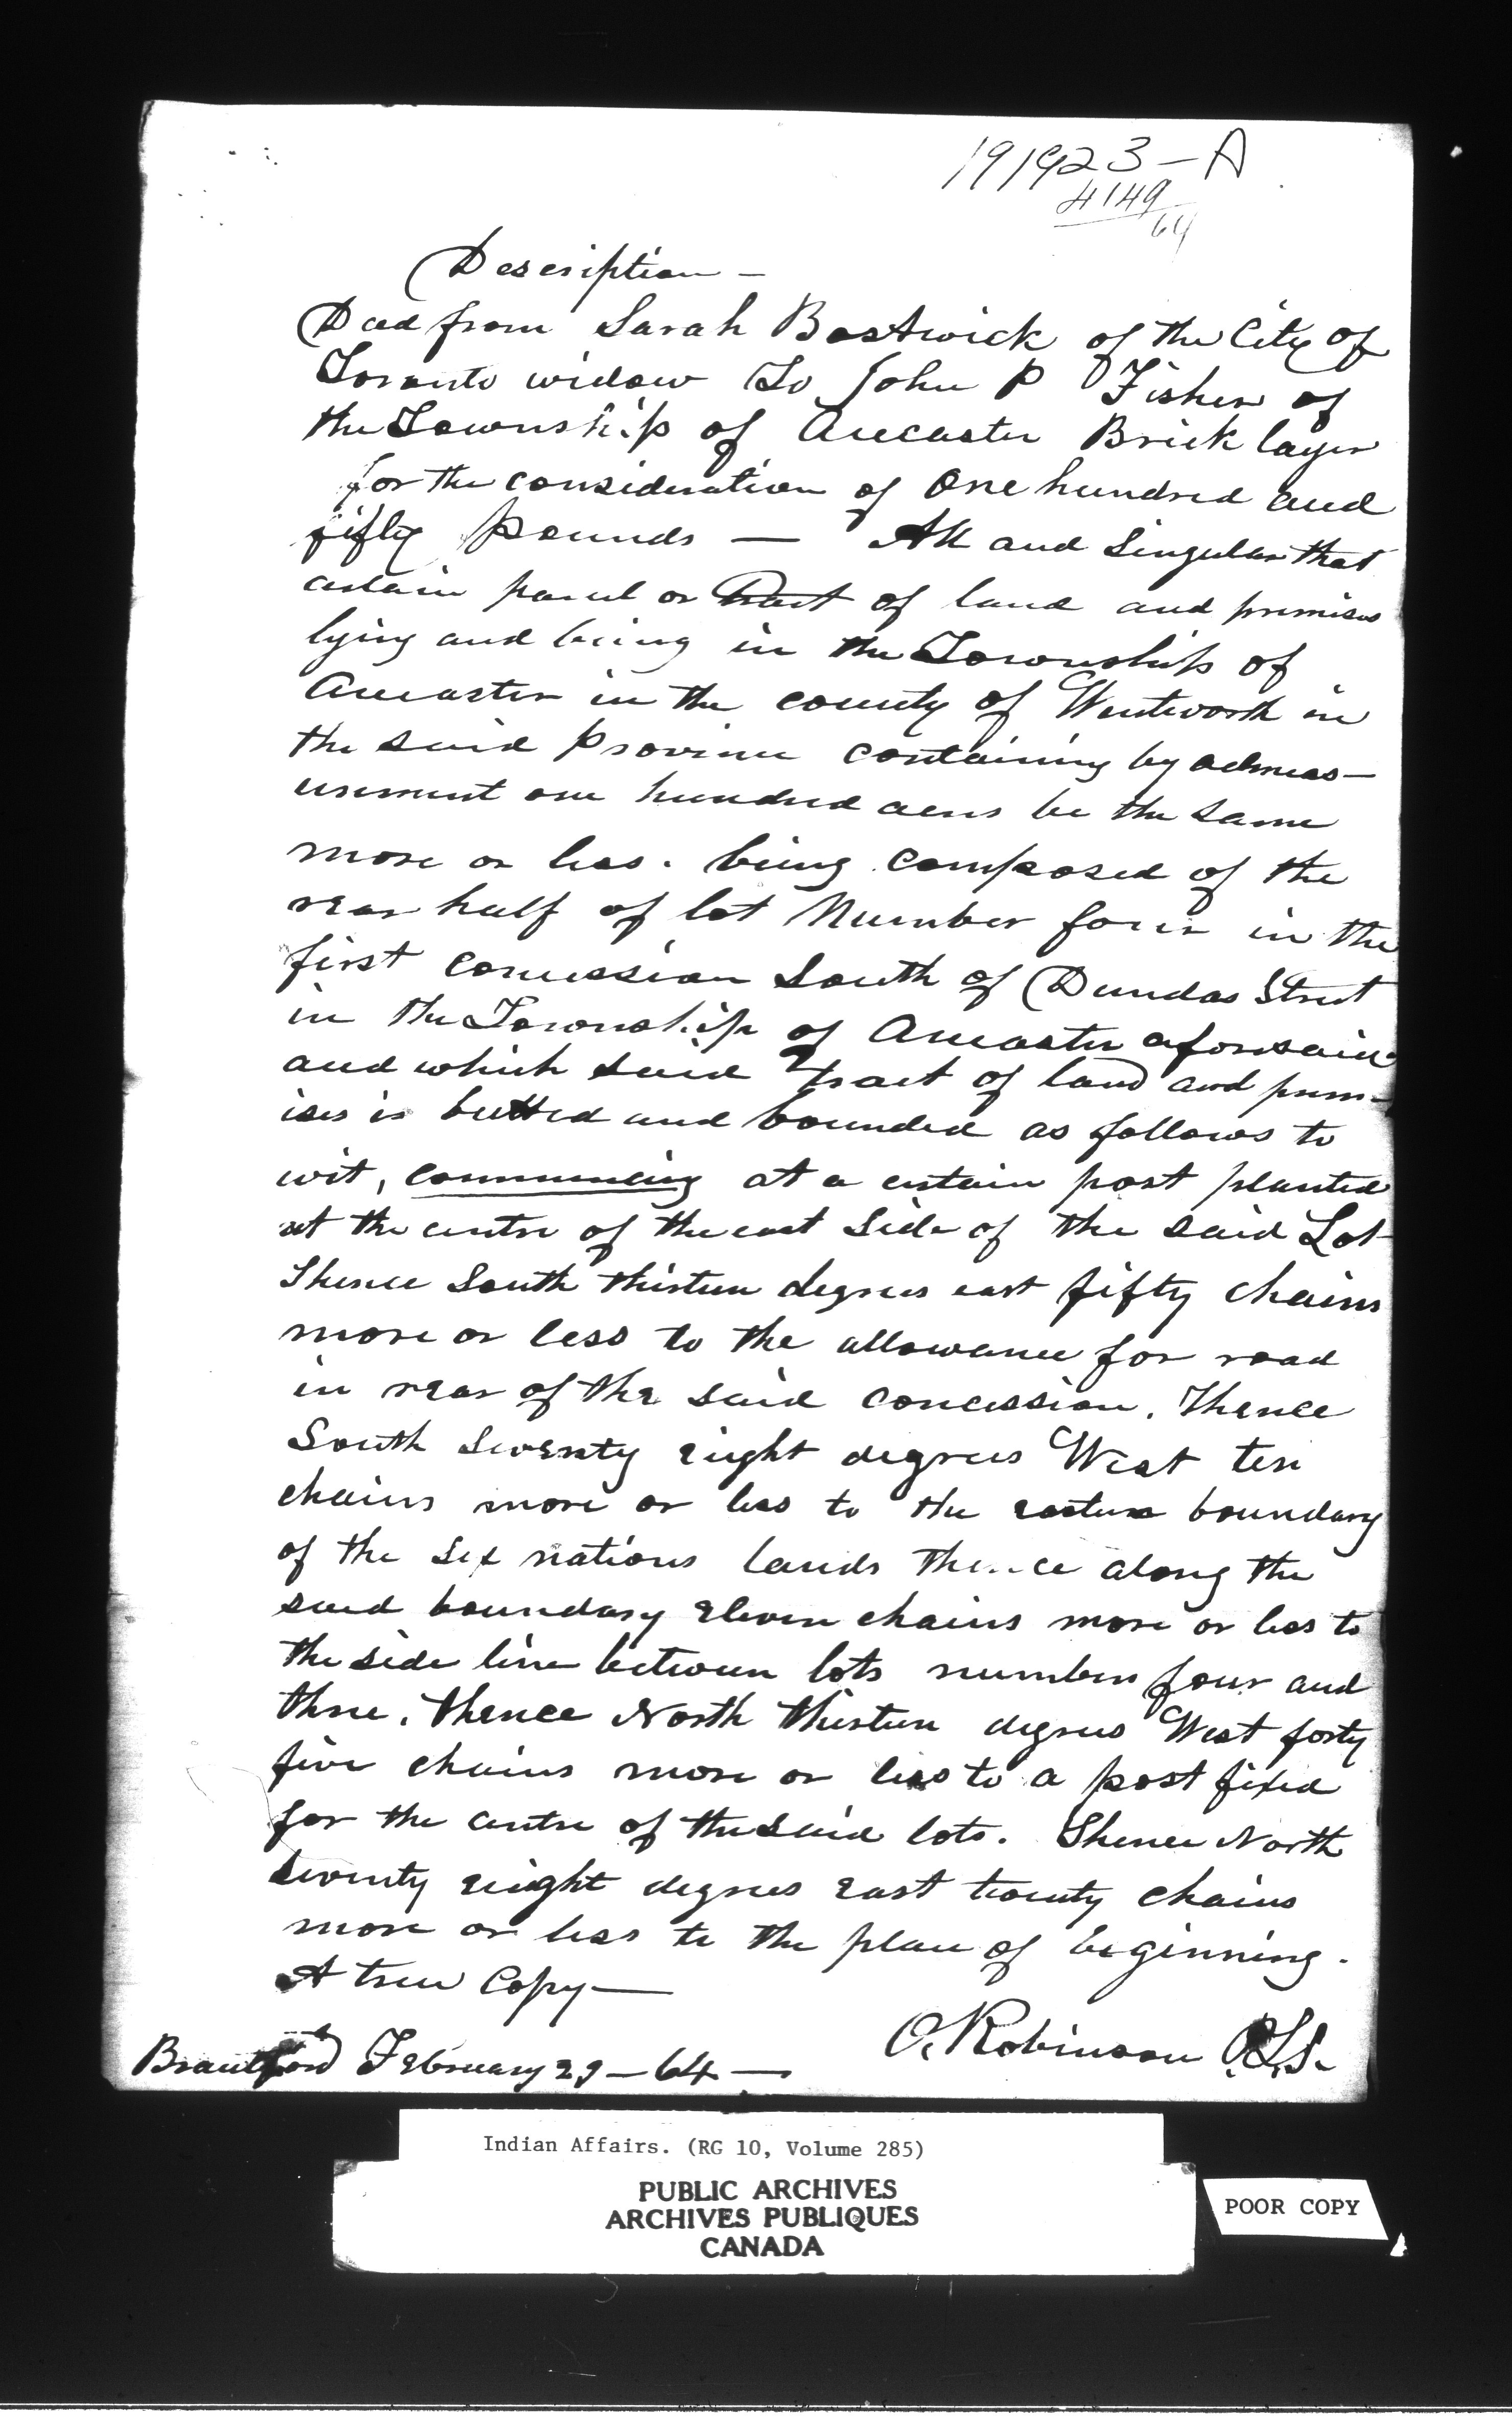 191923-A
4149
64
Description -
Deed from Sarah Bostwick of the City of
Toronto widow To John P Fisher of
the Township of Ancaster Brick layer
for the consideration of One hundred and
fifty pounds — All and Singular that
certain parcel or tract of land and premises
lying and being in the Township of
Ancaster in the county of Wentworth in
the said Province containing by admeas-
urement one hundred acres be the same
more or less. being composed of the
rear half of lot Number four in the
first concession South of Dundas Street
in the Township of Ancaster aforesaid
and which said tract of land and prem-
ises is butted and bounded as follows to
wit, commencing at a certain post planted
at the centre of the east side of the said Lot
Thence South thirteen degrees east fifty chains
more or less to the allowance for road
in rear of the said concession. Thence
South Seventy eight degrees West ten
chains more or less to the eastern boundary
of the six nations lands thence along the
said boundary eleven chains more or less to
the side line between lots numbers four and
three. Thence North thirteen degrees West forty
five chains more or less to a post fixed
for the centre of the said lots. Thence North
seventy eight degrees east twenty chains
more or less to the place of beginning.
A true Copy—
O. Robinson P.L.S.
Brantford February 29-64 —
Indian Affairs. (RG 10, Volume 285)
PUBLIC ARCHIVES
ARCHIVES PUBLIQUES
CANADA
POOR COPY